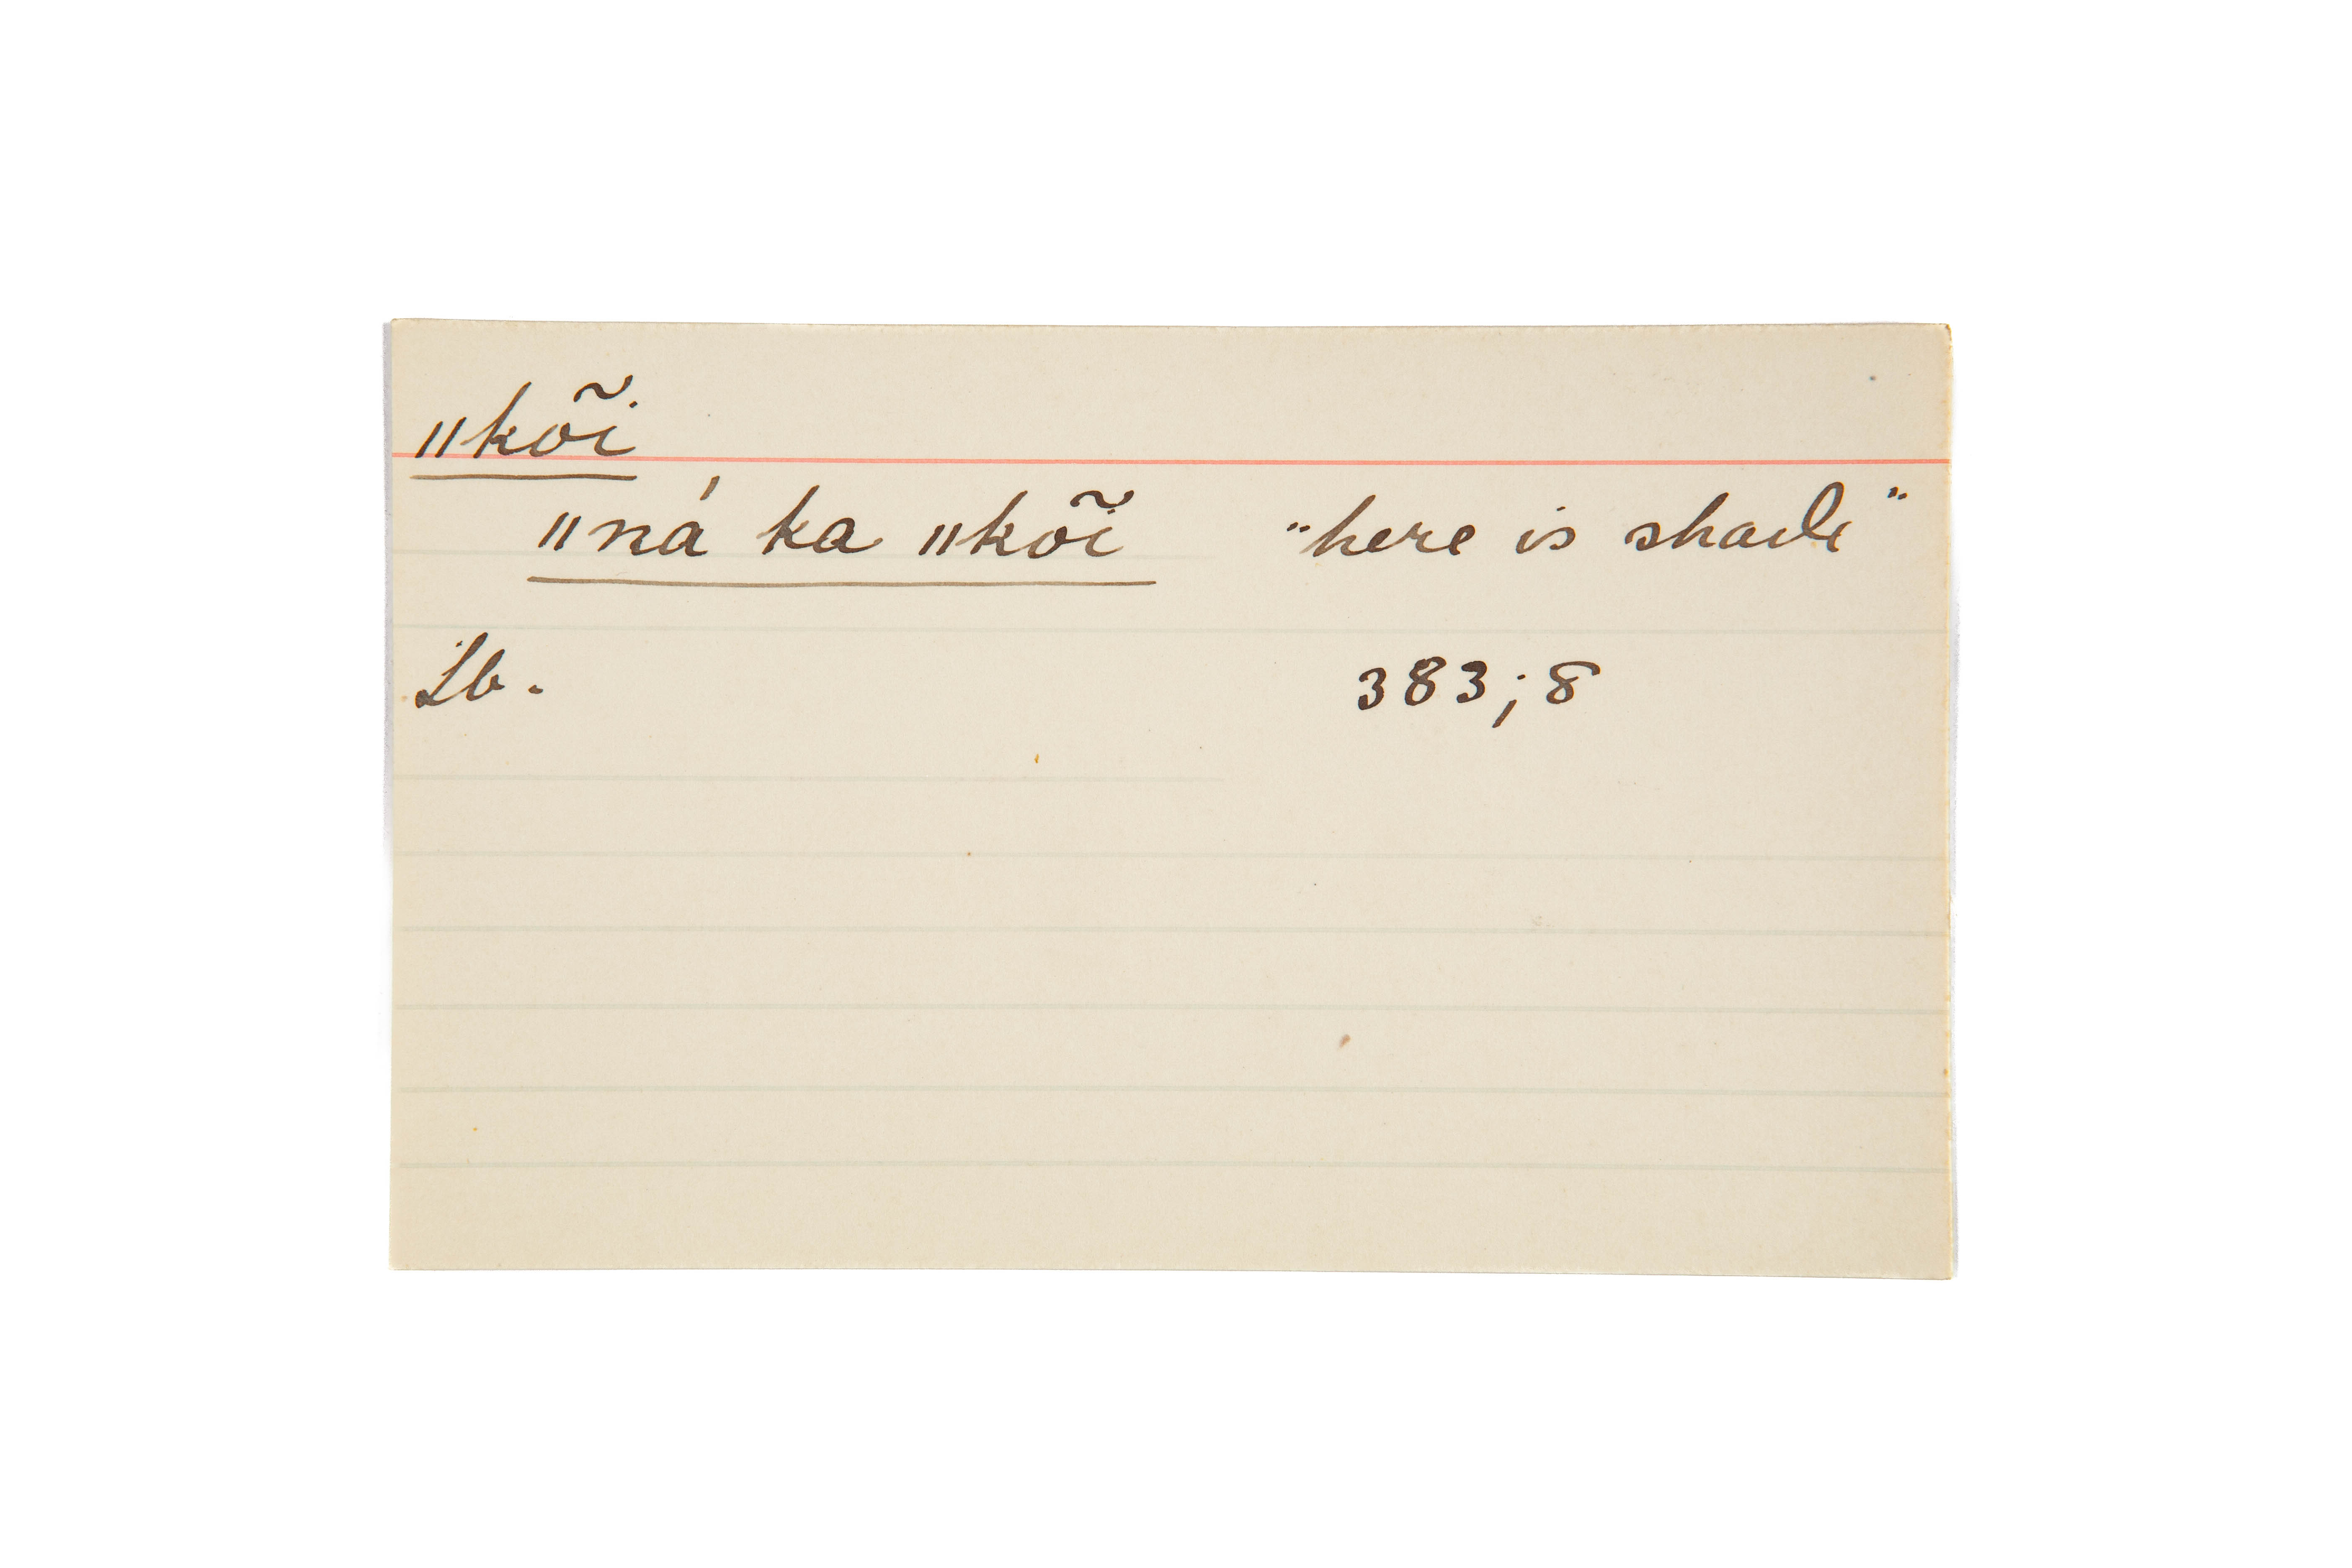 ǁkõĩ
ǁná ka ǁkõĩ "here is shade"
Lb. 383;8